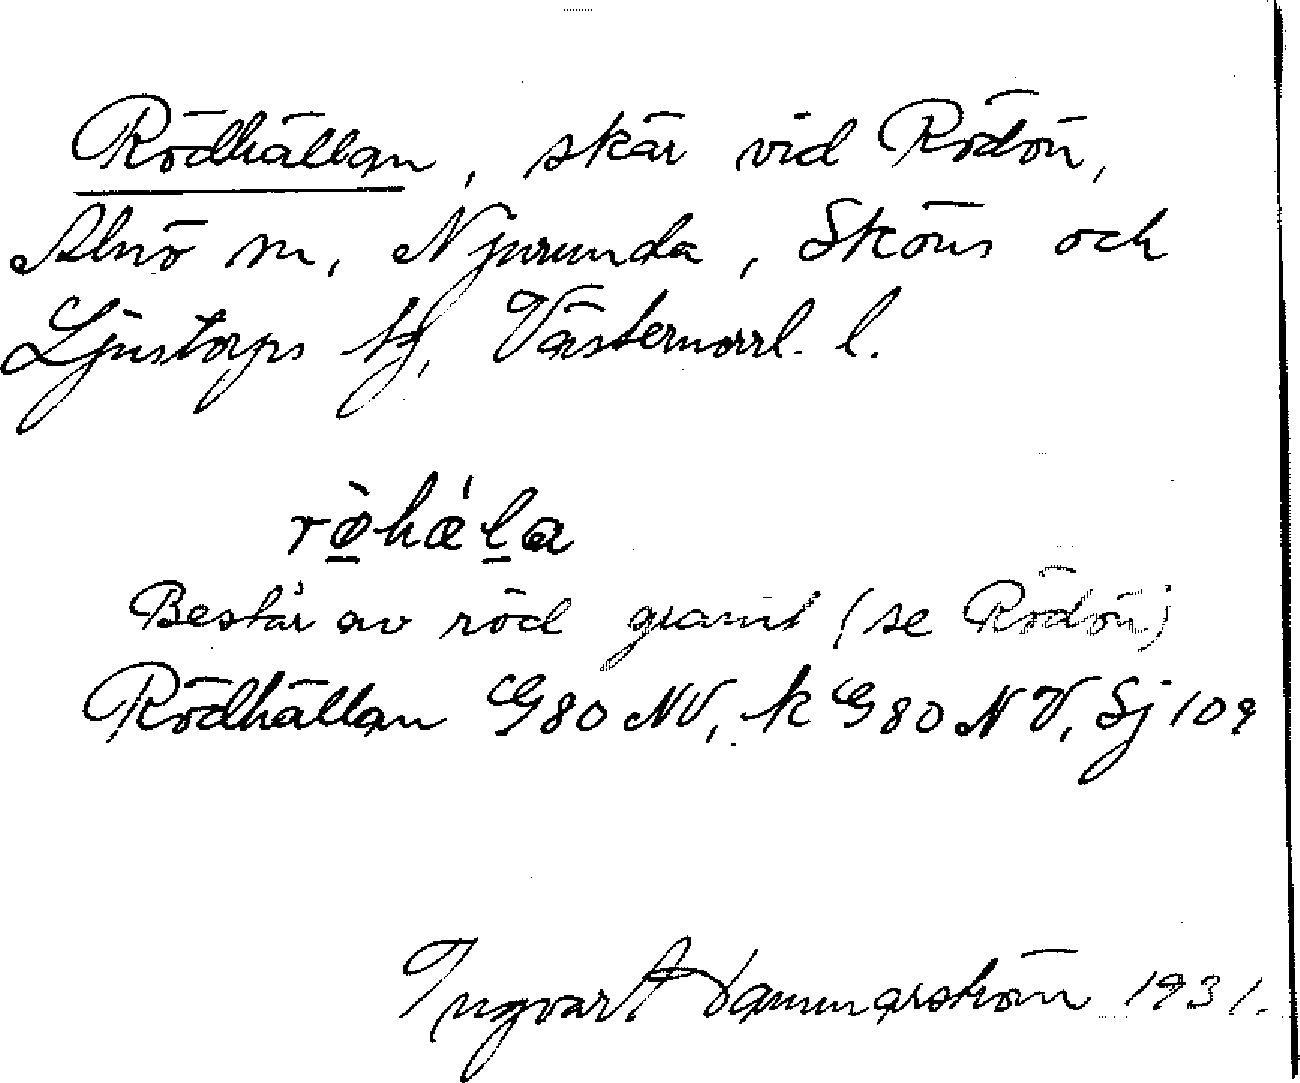 Rödhällan, skär vid Rödön,
Alnö sn, Njurunda, Sköns och
Ljustorps tg, Västernorrl. l.
rø̀hæ̀la
Består av röd granit (se Rödön)
Rödhällan G80NV, k G80NV, Sj 109
Ingvart Hammarström 1931.